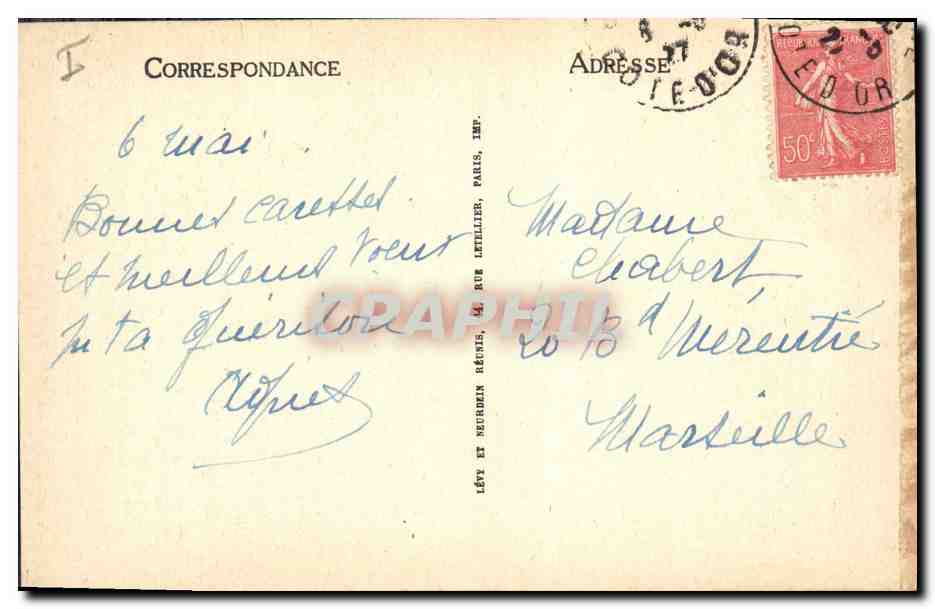 I
CORRESPONDANCE
6 mai.
Bonnes caresses.
et meilleurs voeux
pr ta guérison
Agnes
LÉVY ET NEURDEIN RÉUNIS, 44, RUE LETELLIER, PARIS, IMP.
ADRESSE
CÔTE-D'OR
RÉPUBLIQUE FRANÇAISE
50c
POSTES
Madame
Chabert,
20 Bd Merentié
Marseille
CPAPHIL